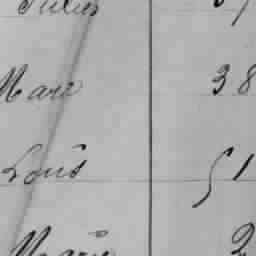 Jules
Marie 38
Louis 51
Marie 2